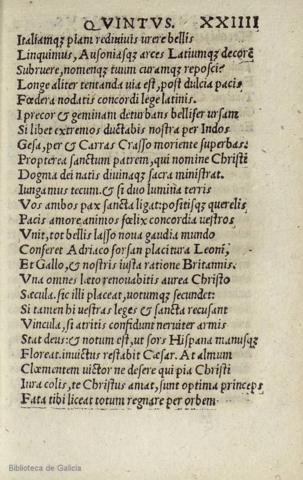 QVINTVS. XXIIII
Italiamqꝫ plam rediuiuis urere bellis
Linquimus, Ausoniasqꝫ arces Latiumqꝫ decorẽ
Subruere, nomenqꝫ tuum curamqꝫ reposcit
Longe aliter tentanda uia est, post dulcia pacis
Fœdera nodatis concordi lege latinis.
I precor & geminam deturbans bellifer ursam
Si libet extremos ductabis nostra per Indos
Gesa, per & Carras Crasso moriente superbas:
Propterea sanctum patrem, qui nomine Christi
Dogma dei natis diuinaqꝫ sacra ministrat.
Iungamus tecum. & si duo lumina terris
Vos ambos pax sancta ligat: positisqꝫ querelis
Pacis amore animos fœlix concordia uestros
Vnit, tot bellis lasso noua gaudia mundo
Conferet Adriaco forsan placitura Leoni,
Et Gallo, & nostris iusta ratione Britannis.
Vna omnes læto renouabitis aurea Christo
Sæcula. sic illi placeat, uotumqꝫ secundet:
Si tamen hi uestras leges & sancta recusant
Vincula, si atritis confidunt neruiter armis
Stat deus: & notum est, ut sors Hispana manusqꝫ
Floreat. inuictus restabit Cæsar. At almum
Clæmentem uictor ne desere qui pia Christi
Iura colis, te Christus amat, sunt optima princeps
Fata tibi liceat totum regnare per orbem
Biblioteca de Galicia